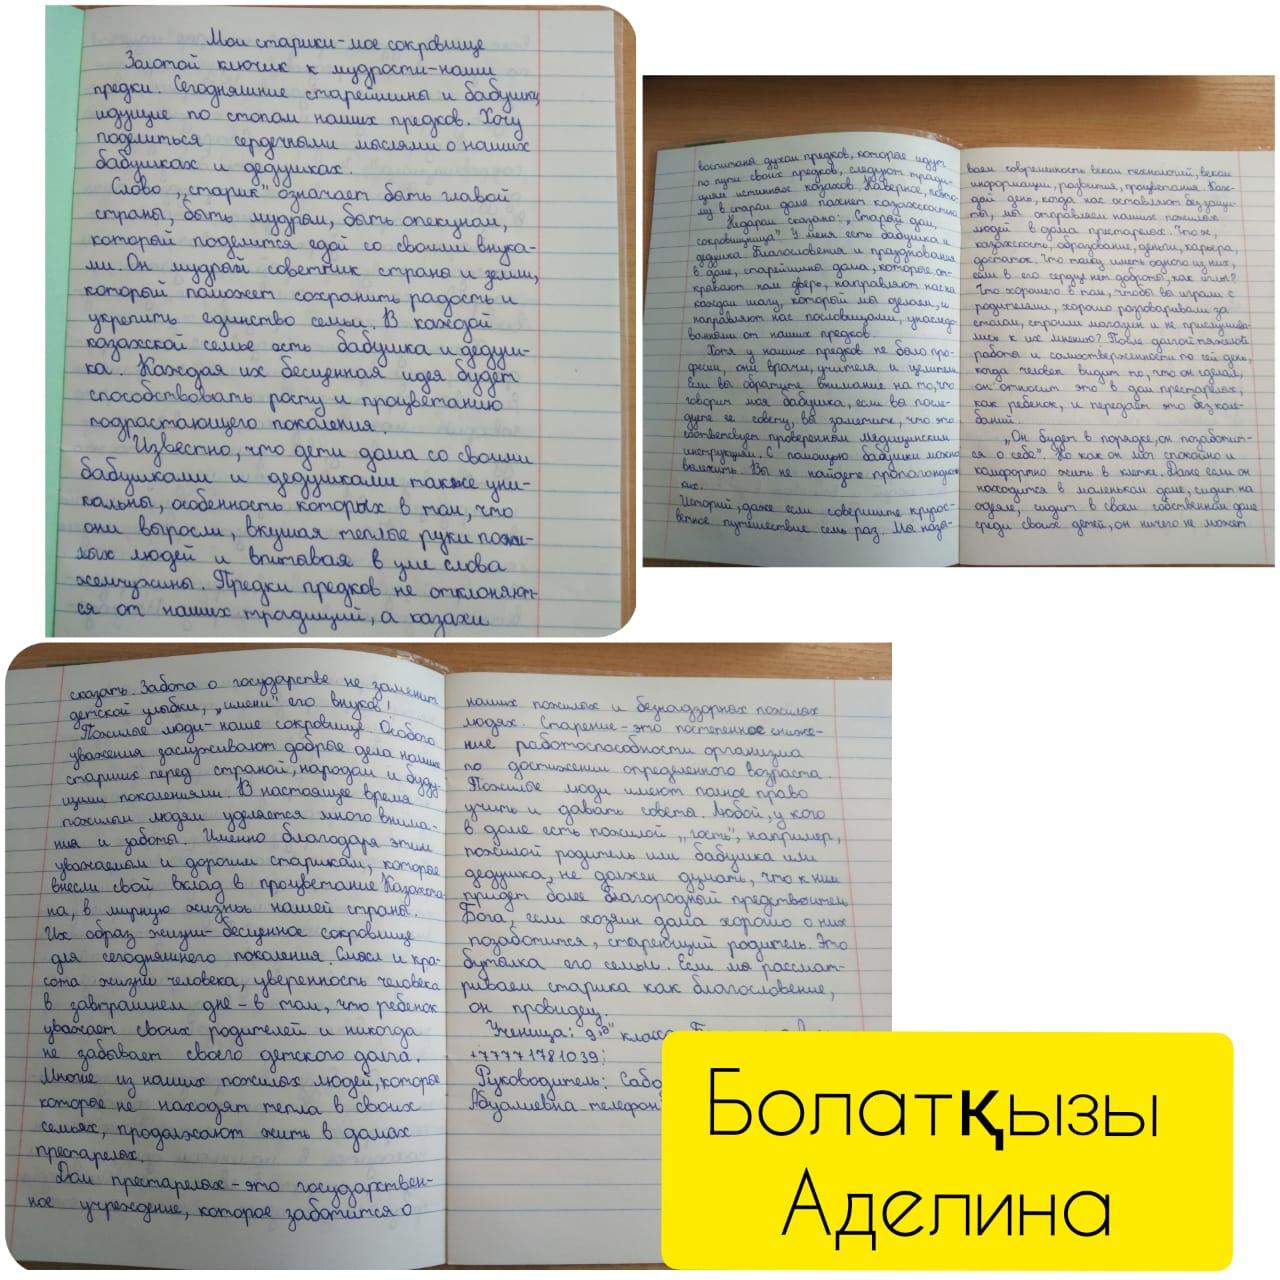 Мои старики-мое сокровище
Золотой ключик к мудрости-наши
предки. Сегодняшние старейшины и бабушки,
идущие по стопам наших предков. Хочу
поделиться сердечными мыслями о наших
бабушках и дедушках.
Слово „старик" означает быть главой
страны, быть мудрым, быть опекуном,
который поделится едой со своими внука-
ми. Он мудрый советник страны и земли,
который поможет сохранить радость и
укрепить единство семьи. В каждой
казахской семье есть бабушка и дедуш-
ка. Каждая их бесценная идея будет
способствовать росту и процветанию
подрастающего поколения.
Известно, что дети дома со своими
бабушками и дедушками также уни-
кальны, особенность которых в том, что
они выросли, вкушая теплые руки пожи-
лых людей и впитывая в уме слова
жемчужины. Предки предков не отклоняют-
ся от наших традиций, а казахи
воспитаны духом предков, которые идут
по пути своих предков, следуют тради-
циям истинных казахов. Наверное, поэто-
му в старом доме пахнет казахскостью
Недаром сказано: „Старый дом,
сокровищница". У меня есть бабушка и
дедушка. Благословения и празднования
в доме, старейшины дома, которые от-
крывают нам дверь, направляют нас на
каждом шагу, который мы делаем, и
направляют нас пословицами, унаследо-
ванными от наших предков.
Хотя у наших предков не было про-
фесии, они врачи, учителя и целители
Если вы обратите внимание на то, что
говорит моя бабушка, если вы после-
дуете ее совету, вы заметите, что это
соответсвует проверенным медицинским
инструкциям. С помощью бабушки можно
выжить. Вы не найдете
ких.
Историй, даже если совершите кругос-
ветное путешествие семь раз. Мы назы-
ваем современность веком технологий, веком
информации, развития, процветания. Каж-
дый день, когда нас оставляют беззащи-
ты, мы отправляем наших пожилых
людей в дома престарелых. Что ж,
казахскость, образование, деньги, карьера,
достаток. Что толку иметь одного из них,
если в его сердце нет доброты, как иглы?
Что хорошего в том, чтобы вы играли с
родителями, хорошо разговаривали за
столом, строили магазин и не прислушива-
лись к их мнению? После долгой тяжелой
работы и самоотверженности по сей день,
когда человек видит то, что он сделал,
он относит это в дом престарелых,
как ребенок, и передаёт это без коле-
баний.
„Он будет в порядке, он позаботит-
ся о себе". Но как он мог спокойно и
комфортно жить в клетке. Даже если он
находится в маленьком доме, сидит на
одеяле, сидит в своем собственном доме
среди своих детей, он ничего не может
сказать. Забота о государстве не заменит
детской улыбки, „имени" его внука!
Пожилые люди-наше сокровище. Особого
уважения заслуживают добрые дела наших
старших перед страной, народом и буду-
щими поколениями. В настоящее время
пожилым людям уделяется много внима-
ния и заботы. Именно благодаря этим
уважаемым и дорогим старикам, которые
внесли свой вклад в процветание Казахста-
на, в мирную жизнь нашей страны.
Их образ жизни-бесценное сокровище
для сегодняшнего поколения. Смысл и кра-
сота жизни человека, уверенность человека
в завтрашнем дне-в том, что ребенок
уважает своих родителей и никогда
не забывает своего детского долга.
Многие из наших пожилых людей, которые
которые не находят тепла в своих
семьях, продолжают жить в домах
престарелых.
Дом престарелых-это государствен-
ное учреждение, которое заботится о
наших пожилых и безнадзорных пожилых
людях. Старение-это постепенное сниже-
ние работоспособности организма
по достижении определенного возраста.
Пожилые люди имеют полное право
учить и давать советы. Любой, у кого
в доме есть пожилой „гость", например,
пожилой родитель или бабушка или
дедушка, не должен думать, что к ним
придет более благородный
Бога, если хозяин дома хорошо о них
позаботится, стареющий родитель. Это
бутылка его семьи. Если мы рассмат-
риваем старика как благословение,
он провидец.
Ученица: 9 класса
+77771781039;
Руководитель:
Абуалиевна телефон
Болатқызы
Аделина